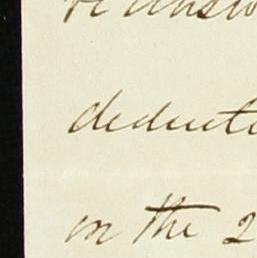 deducte
on the 2